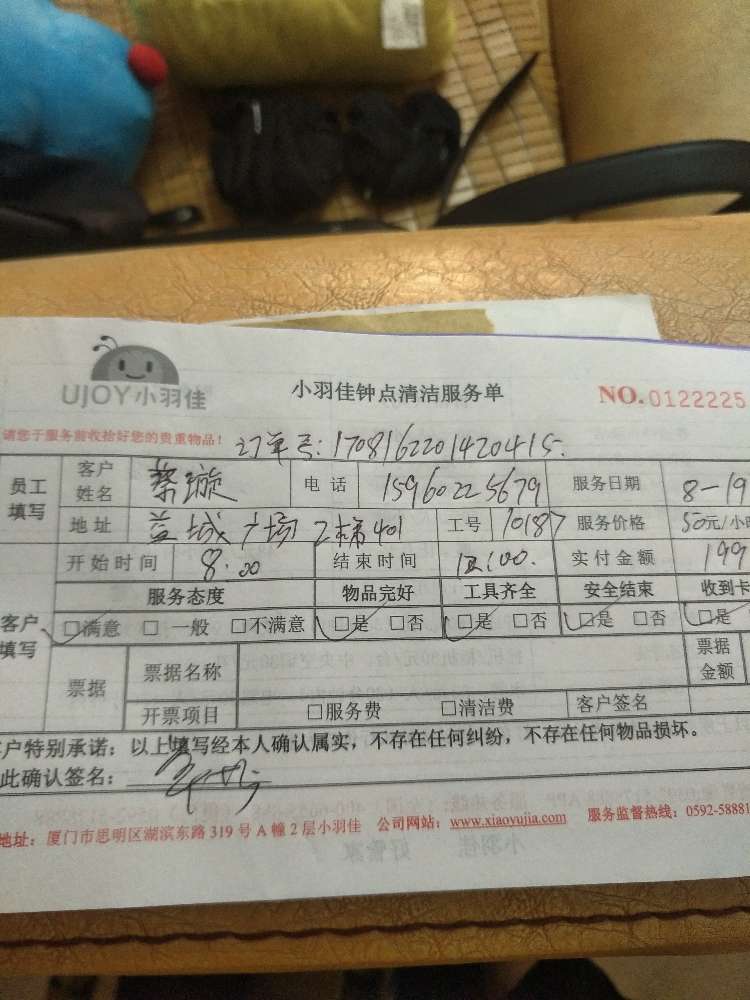 UJOY小羽佳
小羽佳钟点清洁服务单
NO.0122225
请您于服务前收拾好您的贵重物品！
订单号：1708162201420415.
员工填写 客户姓名 蔡璇 电话 15960225679 服务日期 8-19
地址 益城广场2栋401 工号 70187 服务价格 50元/小时
开始时间 8:00 结束时间 12:00. 实付金额 199
客户填写 服务态度 物品完好 工具齐全 安全结束 收到卡
□满意 □一般 □不满意 □是 □否 □是 □否 □是 □否 □是
票据 票据名称 票据金额
开票项目 □服务费 □清洁费 客户签名
户特别承诺：以上填写经本人确认属实，不存在任何纠纷，不存在任何物品损坏。
此确认签名：
地址：厦门市思明区湖滨东路 319 号 A 幢 2 层小羽佳 公司网站：www.xiaoyujia.com 服务监督热线：0592-58881